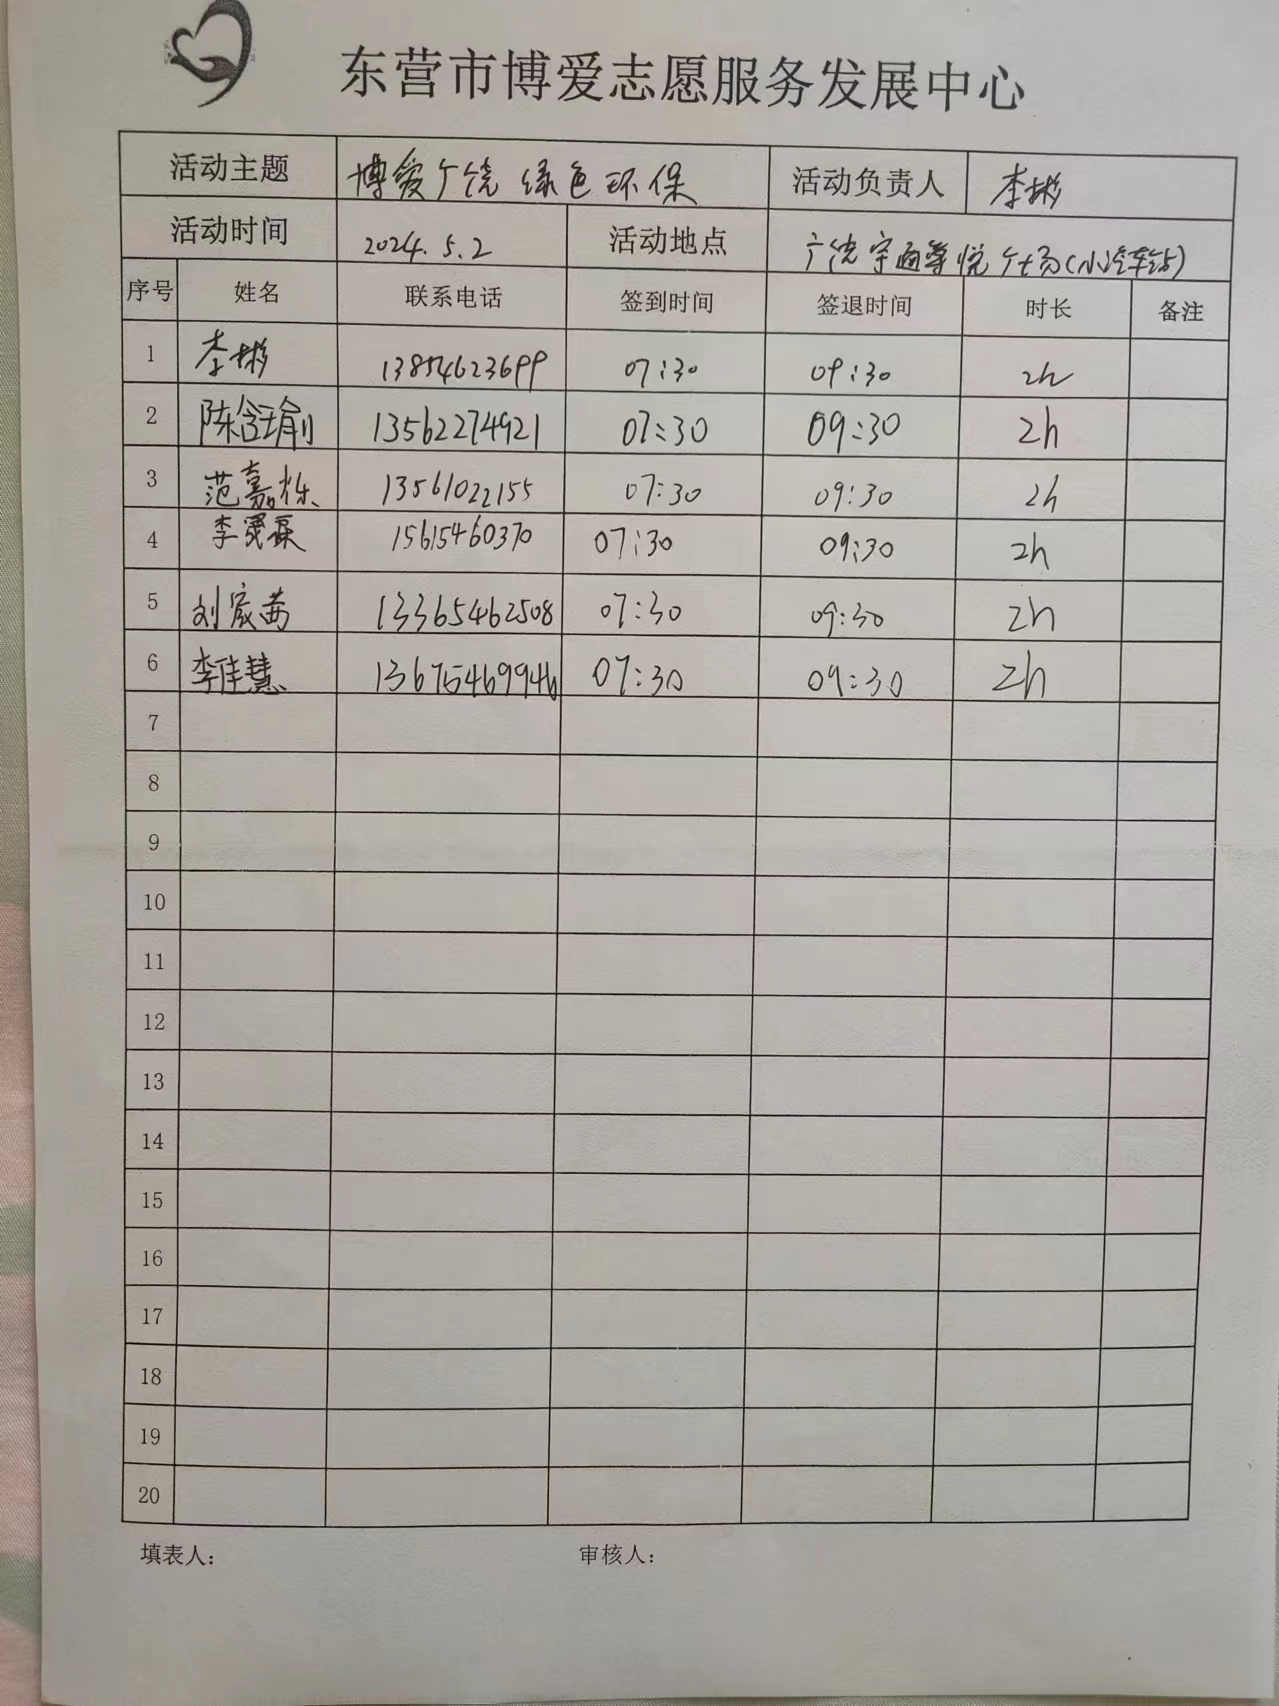 东营市博爱志愿服务发展中心
活动主题 博爱广饶 绿色环保 活动负责人 李彬
活动时间 2024.5.2 活动地点 广饶宇通尊悦广场(小汽车站)
序号 姓名 联系电话 签到时间 签退时间 时长 备注
1 李彬 13854623699 07:30 09:30 2h
2 陈含瑜 13562274921 07:30 09:30 2h
3 范嘉栎 13561022155 07:30 09:30 2h
4 李 15615460370 07:30 09:30 2h
5 刘宸茜 13365462508 07:30 09:30 2h
6 李佳慧 13675469946 07:30 09:30 2h
7
8
9
10
11
12
13
14
15
16
17
18
19
20
填表人： 审核人：